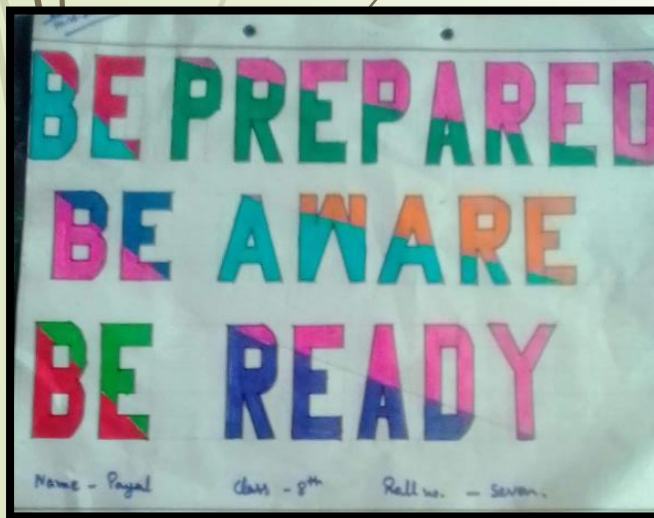 BE PREPARED
BE AWARE
BE READY
Name - Payal Class - 8th Roll no. - Seven.